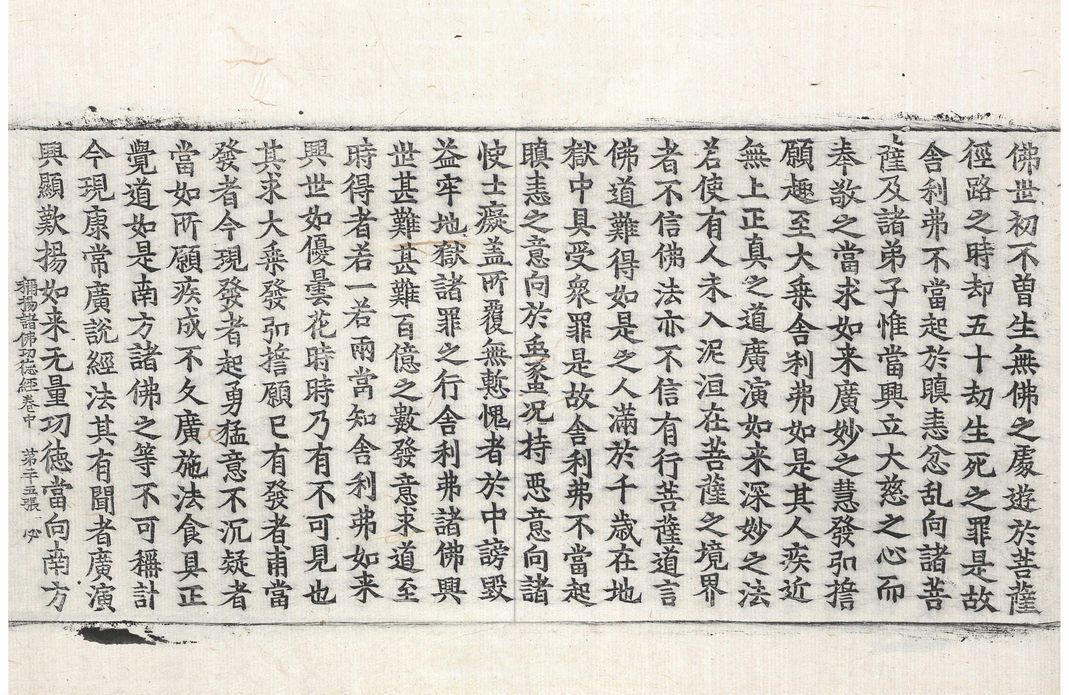 佛世初不曽生無佛之處遊於菩薩
徑路之時却五十劫生死之罪是故
舍利弗不當起於瞋恚忿乱向諸菩
薩及諸弟子惟當興立大慈之心而
奉敬之當求如来廣妙之慧發弘擔
願趣至大乗舍利弗如是其人疾近
無上正真之道廣演如来深妙之法
若使有人未入泥洹在菩薩之境界
者不信佛法亦不信有行菩薩道言
佛道難得如是之人滿於千歳在地
獄中具受衆罪是故舍利弗不當起
瞋恚之意向於䖝豸况持惡意向諸
使士癡盖所覆無慙愧者於中謗毀
益牢地獄諸罪之行舍利弗諸佛興
世甚難甚難百億之數發意求道至
時得者若一若兩當知舍利弗如来
興世如優曇花時時乃有不可見也
其求大乗發弘擔願巳有發者甫當
發者今現發者起勇猛意不沉疑者
當如所願疾成不久廣施法食具正
覺道如是南方諸佛之等不可稱計
今現康常廣說經法其有聞者廣演
興顯歎揚如来无量功徳當向南方
稱揚諸佛功徳經卷中　第二十五張